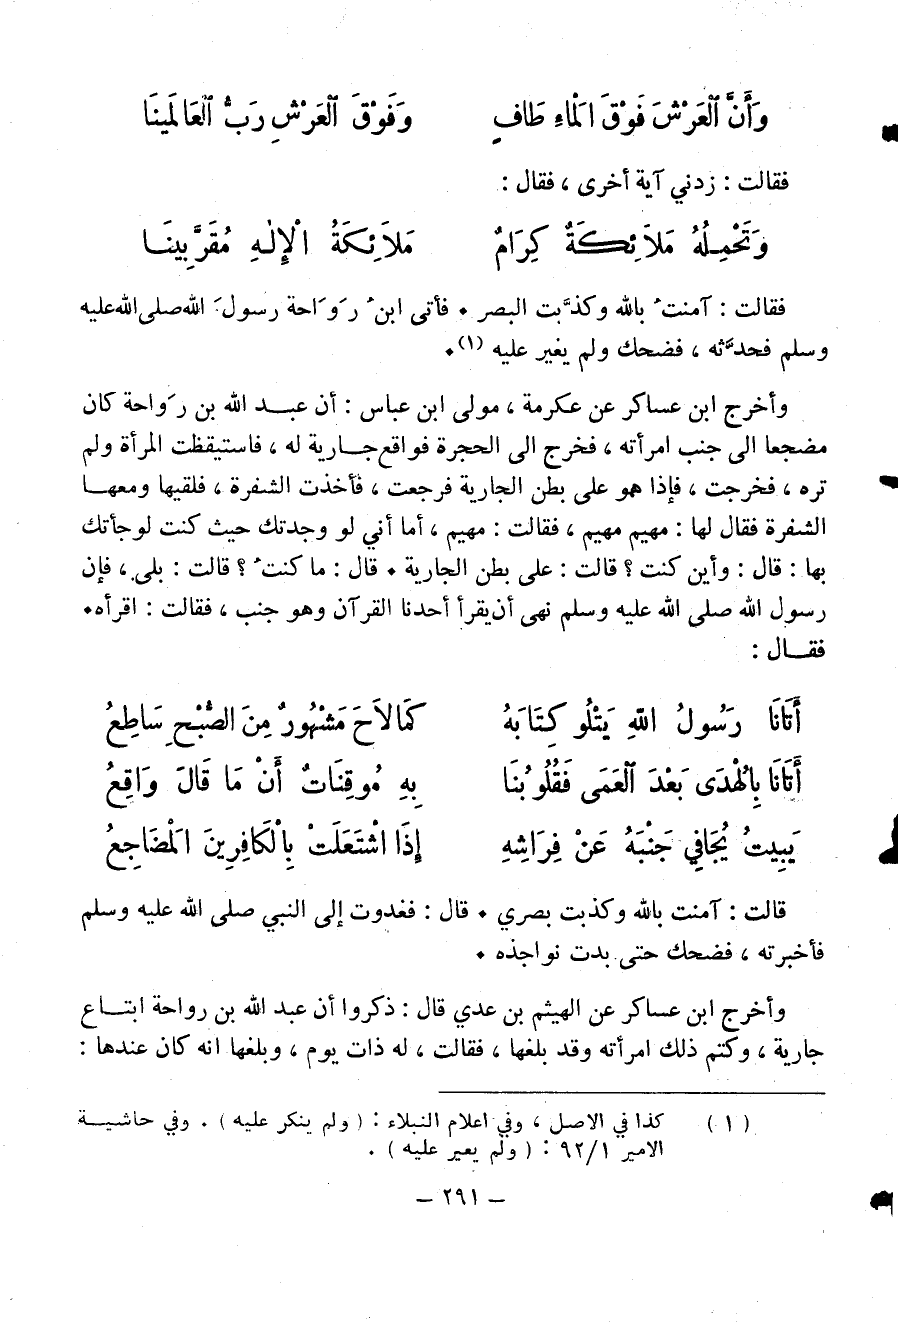 وَأَنَّ ٱلْعَرْشَ فَوْقَ ٱلْمَاءِ طَافٍ وَفَوْقَ ٱلْعَرْشِ رَبُّ ٱلْعَالَمِينَا
فقالت : زدني آية أخرى ، فقال :
وَتَحْمِلُهُ مَلاَئِكَةٌ كِرَامٌ مَلاَئِكَةُ الْإِلٰهِ مُقَرَّبِينَا
فقالت : آمنتُ بالله وكذَّبت البصر ٠ فأتى ابنُ رَوَاحة رسولَ الله صلى الله عليه
وسلم فحدَّثه ، فضحك ولم يغير عليه (١)٠
وأخرج ابن عساكر عن عكرمة ، مولى ابن عباس : أن عبـد الله بن رَواحة كان
مضجعا الى جنب امرأته ، فخرج الى الحجرة فواقع جـارية له ، فاستيقظت المرأة ولم
تره ، فخرجت ، فإذا هو على بطن الجارية فرجعت ، فأخذت الشفرة ، فلقيها ومعهـا
الشفرة فقال لها : مهيم مهيم ، فقالت : مهيم ، أما أني لو وجدتك حيث كنت لوجأتك
بها : قال : وأين كنت ؟ قالت : على بطن الجارية ٠ قال : ما كنتُ ؟ قالت : بلى ، فإن
رسول الله صلى الله عليه وسلم نهى أن يقرأ أحدنا القرآن وهو جنب ، فقالت : اقرأه٠
فقـال :
أَتَانَا رَسُولُ اللهِ يَتْلُو كِتَابَهُ كَمَا لاَحَ مَشْهُورٌ مِنَ الصُّبْحِ سَاطِعُ
أَتَانَا بِالْهُدَى بَعْدَ ٱلْعَمَى فَقُلُوبُنَا بِهِ مُوقِنَاتٌ أَنْ مَا قَالَ وَاقِعُ
يَبِيتُ يُجَافِي جَنْبَهُ عَنْ فِرَاشِهِ إِذَا اشْتَعَلَتْ بِالْكَافِرِينَ الْمَضَاجِعُ
قالت : آمنت بالله وكذبت بصري ٠ قال : فغدوت إلى النبي صلى الله عليه وسلم
فأخبرته ، فضحك حتى بدت نواجذه ٠
وأخرج ابن عساكر عن الهيثم بن عدي قال : ذكروا أن عبد الله بن رواحة ابتـاع
جارية ، وكتم ذلك امرأته وقد بلغها ، فقالت ، له ذات يوم ، وبلغها انه كان عندها :
(١) كذا في الاصل ، وفي اعلام النبلاء : ( ولم ينكر عليه ) . وفي حاشيـة
الامير ٩٢/١ : ( ولم يعير عليه ) .
– ٢٩١ –